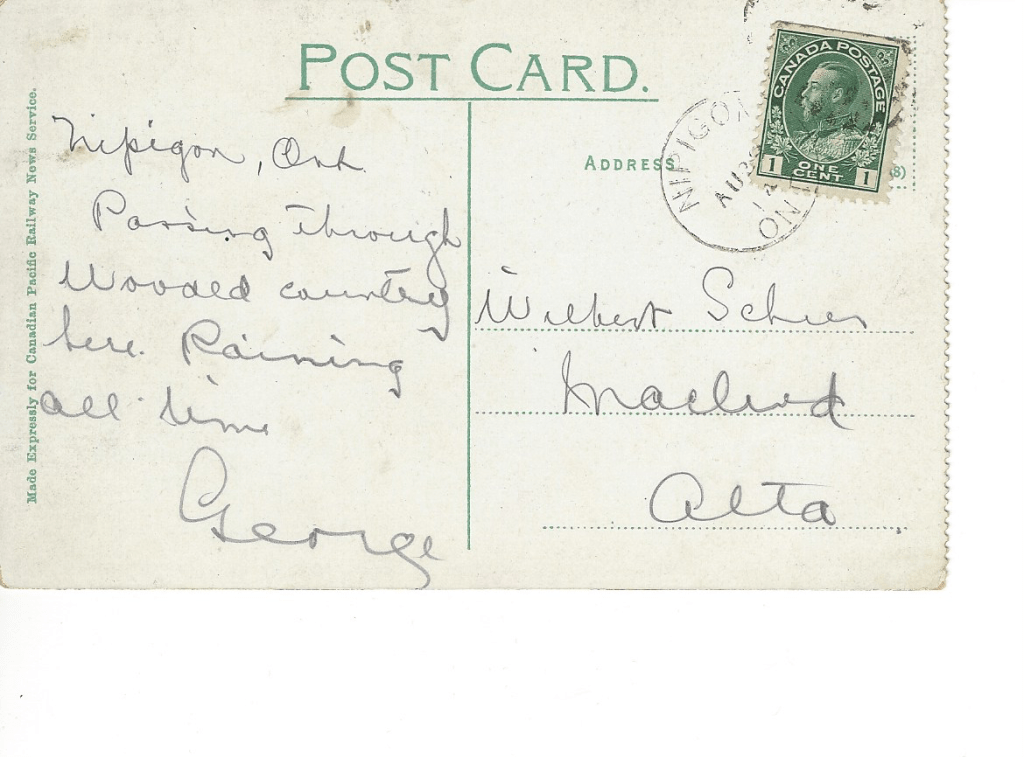 POST CARD.
Made Expressly for Canadian Pacific Railway News Service.
Nipigon, Ont
Passing through
Wooded country
here. Raining
all time
George
ADDRESS
CANADA POSTAGE
1 ONE CENT 1
NIPIGON
AU
ONT
8)
Wilbert
Macleod
Alta